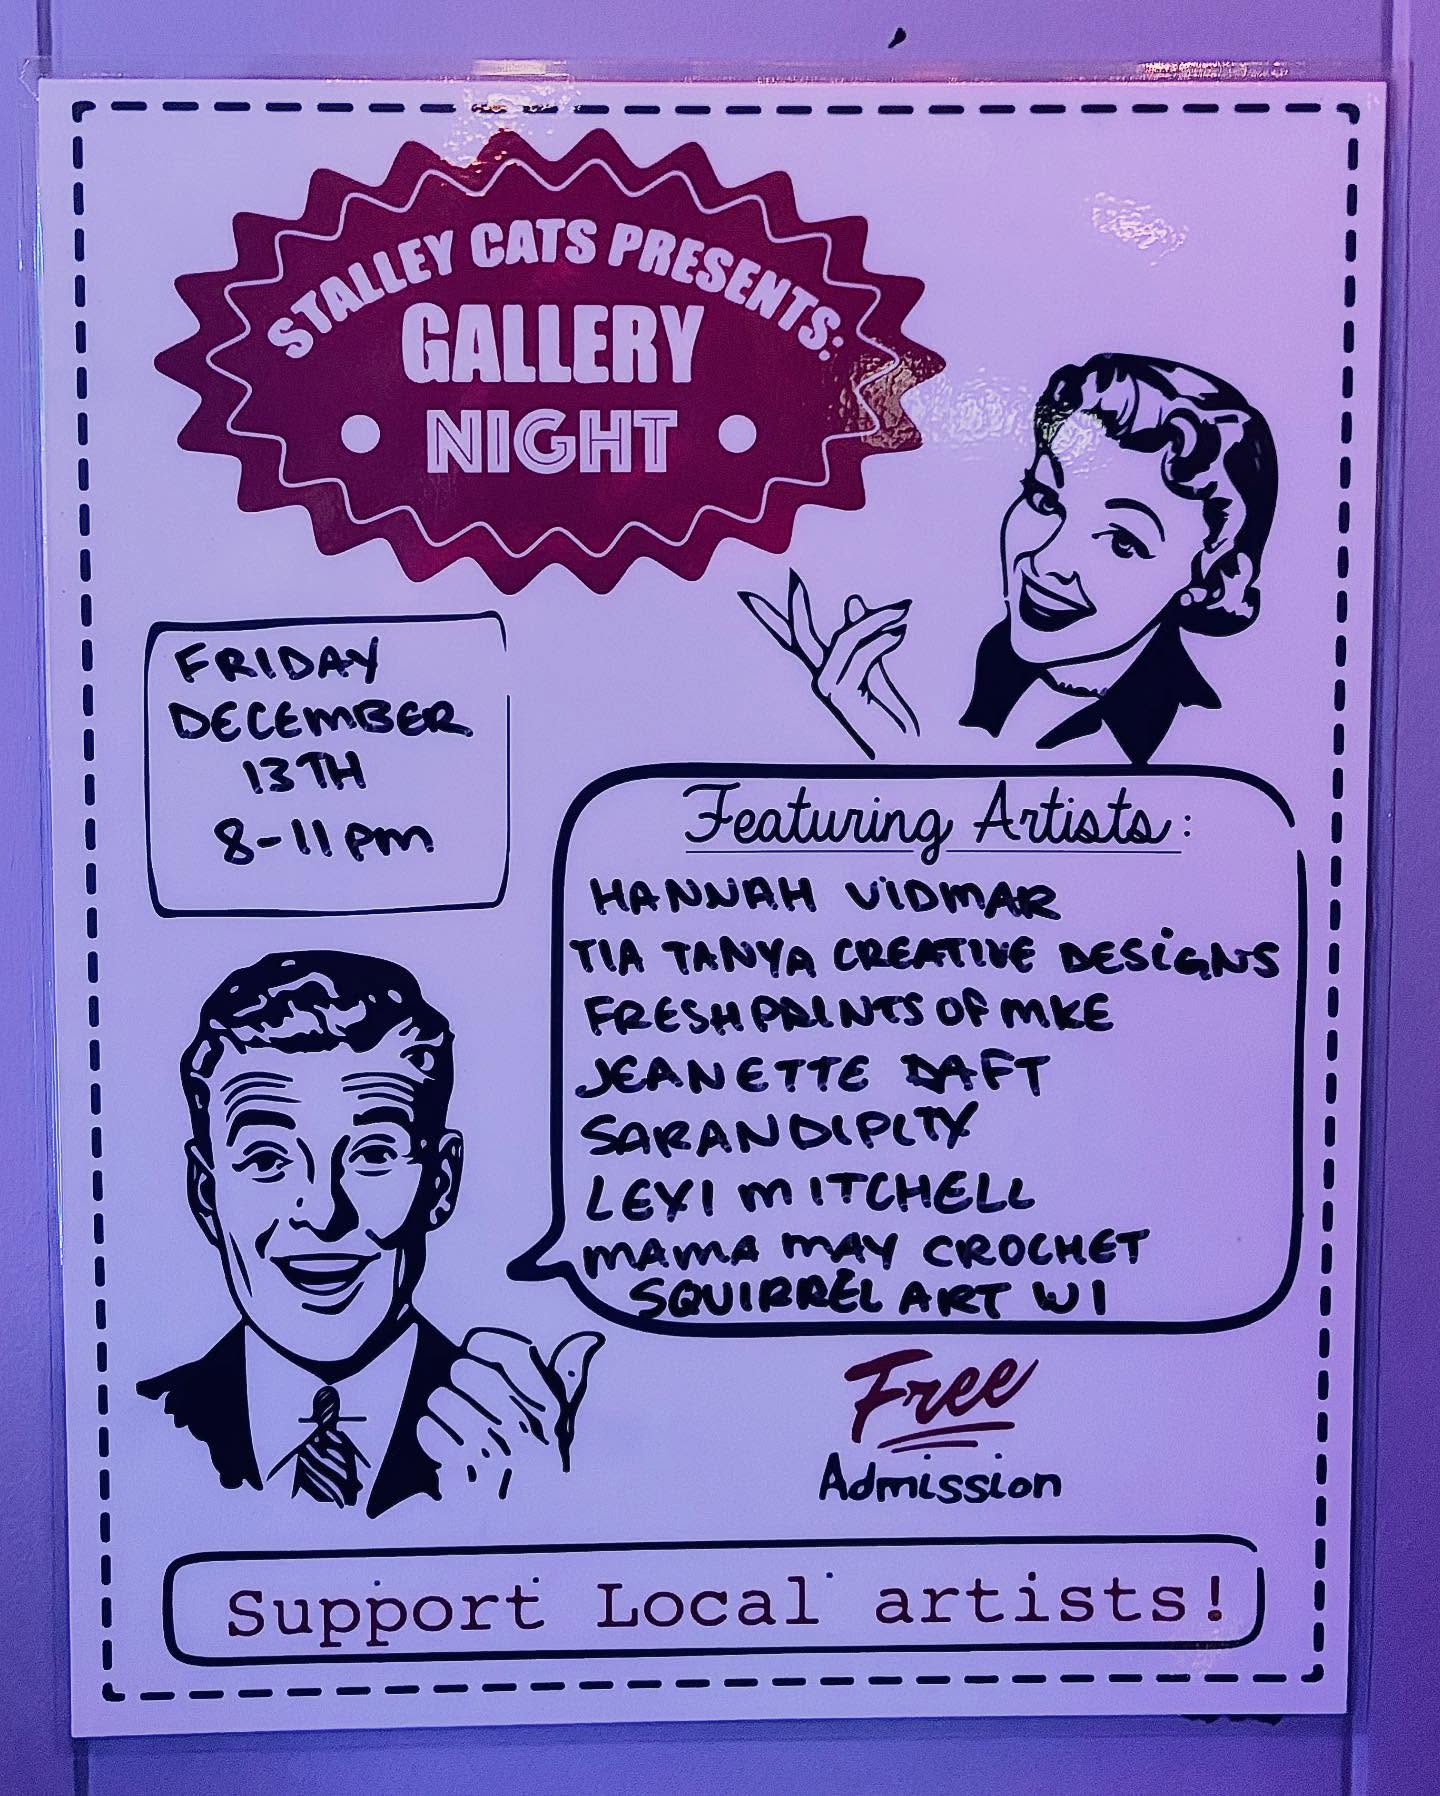 STALLEY CATS PRESENTS:
GALLERY
NIGHT
FRIDAY
DECEMBER
13TH
8-11pm
Featuring Artists:
HANNAH VIDMAR
TIA TANYA CREATIVE DESIGNS
FRESHPRINTS OF MKE
JEANETTE DAFT
SARANDIPITY
LEXI MITCHELL
MAMA MAY CROCHET
SQUIRREL ART WI
Free
Admission
Support Local artists!